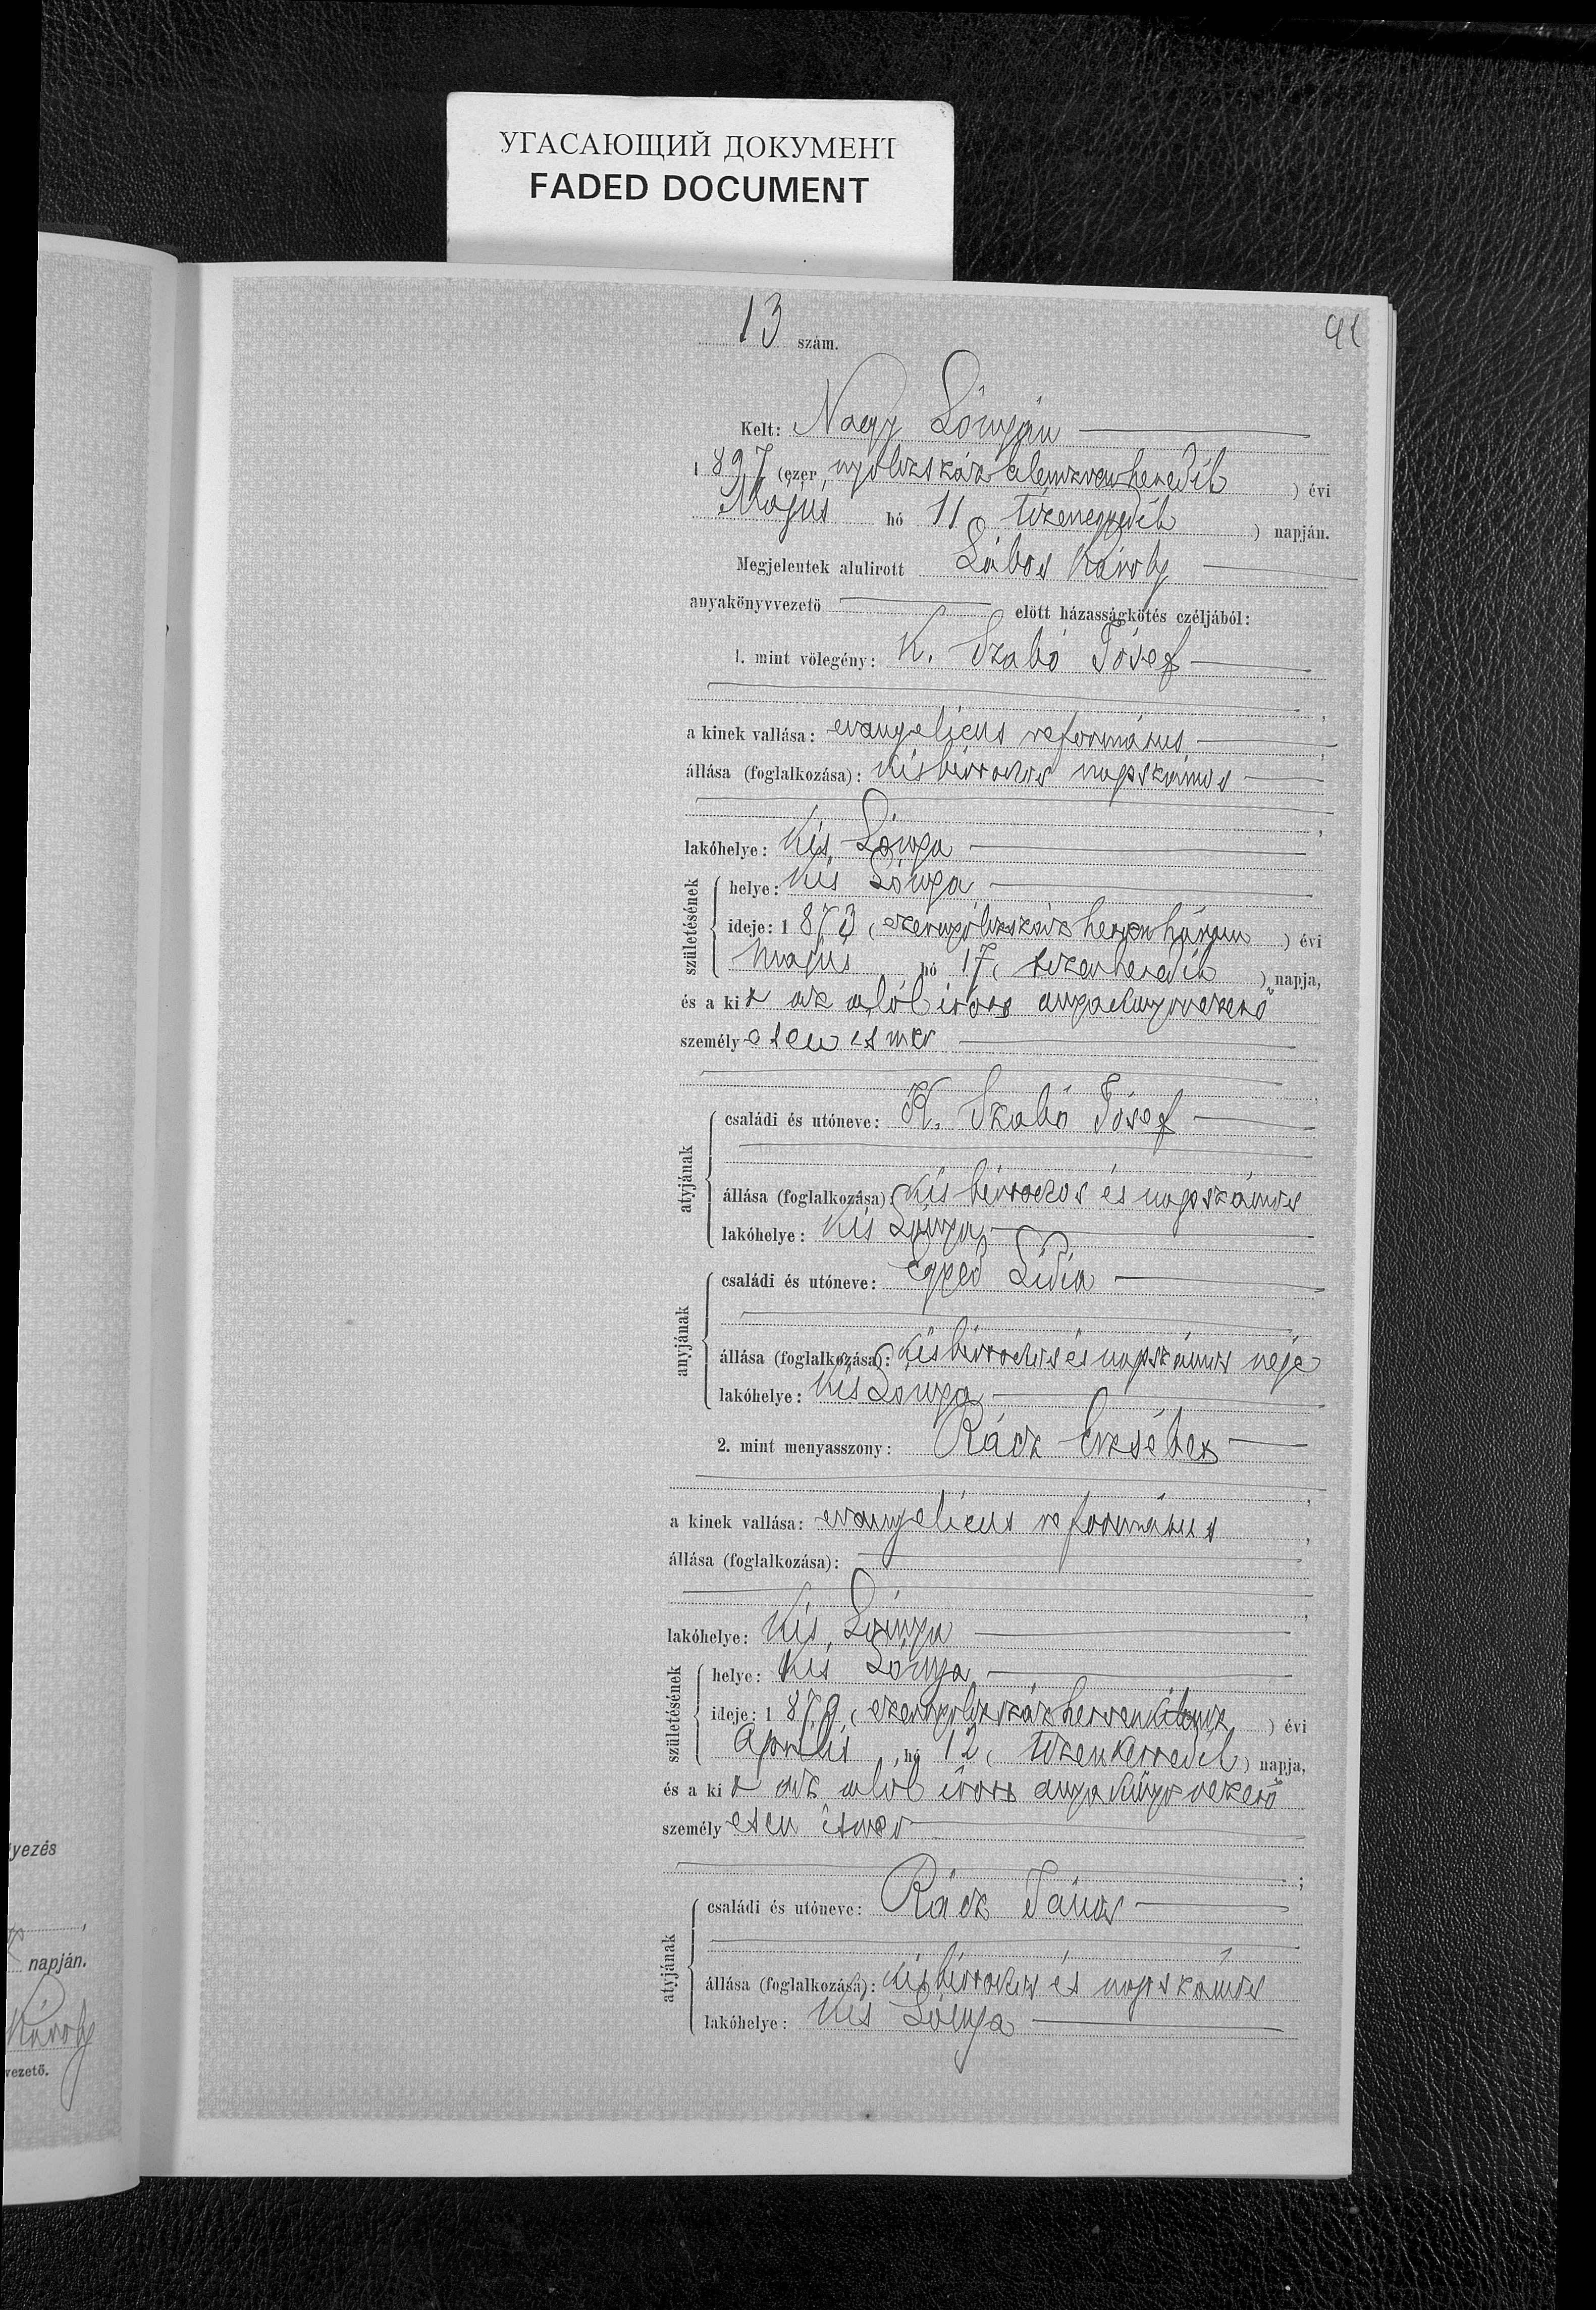 УГАСАЮЩИЙ ДОКУМЕНТ
FADED DOCUMENT
13 szám.
91
Kelt: Nagy Lónyán
1897 (ezer nyolczszáz kilenczvenhetedik ) évi
Május hó 11 tizenegyedik ) napján.
Megjelentek alulirott Lábos Károly
anyakönyvvezető előtt házasságkötés czéljából:
1. mint vőlegény: K. Szabó Jósef
a kinek vallása: evangelicus református ;
állása (foglalkozása): kisbirtokos napszámos
lakóhelye: Kis Lónya
születésének
helye: Kis Lónya
ideje: 1873 (ezernyolczszáz hetvenhárom ) évi
május hó 17 ( tizenhetedik ) napja,
és a kit az alól irott anyakönyvvezető
személyesen ismer
atyjának
családi és utóneve: K. Szabó Jósef
állása (foglalkozása): kis birtokos és napszámos
lakóhelye: Kis Lónya
anyjának
családi és utóneve: Egyed Lidia
állása (foglalkozása): kisbirtokos és napszámos neje
lakóhelye: Kis Lónya
2. mint menyasszony: Rácz Erzsébet
a kinek vallása: evangelicus református ,
állása (foglalkozása):
lakóhelye: Kis Lónya
születésének
helye: Kis Lónya
ideje: 1879 ( ezernyolczszáz hetvenkilencz ) évi
Április hó 12 ( tizenkettedik ) napja,
és a kit az alól irott anyakönyvvezető
személyesen ismer
;
atyjának
családi és utóneve: Rácz János
állása (foglalkozása): kisbirtokos és napszámos
lakóhelye: Kis Lónya
yezés
napján.
Károly
vezető.